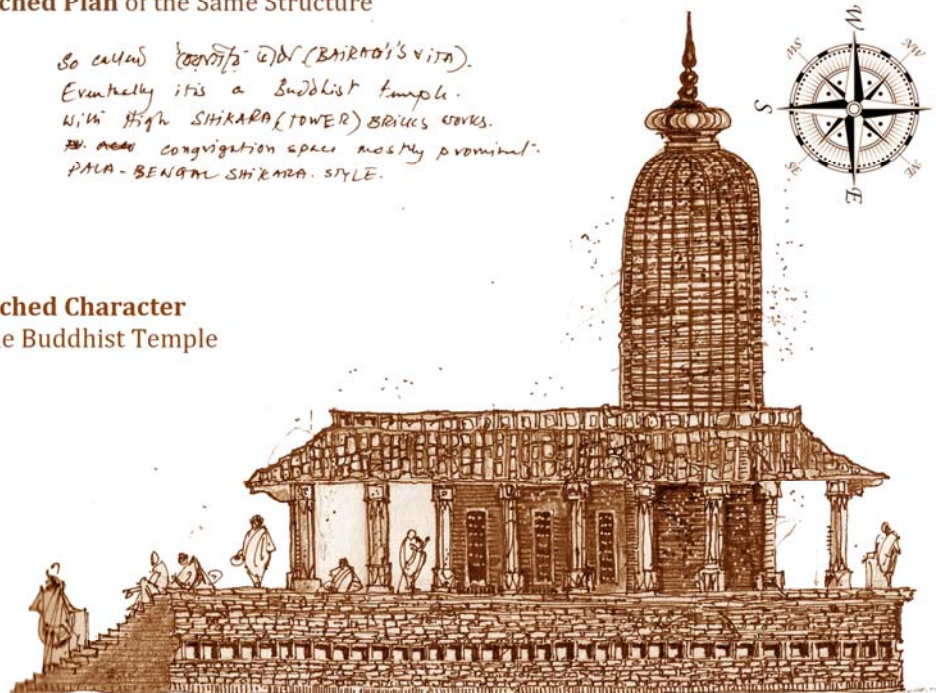 ched Plan of the Same Structure
So called (BAIRAGI'S VITA).
Eventually it is a Buddhist temple.
with High SHIKARA (TOWER) BRICKS works.
congrigation space mostly prominent.
PALA-BENGAL SHIKARA. STYLE.
W
SW
NW
S
SE
NE
E
ched Character
e Buddhist Temple